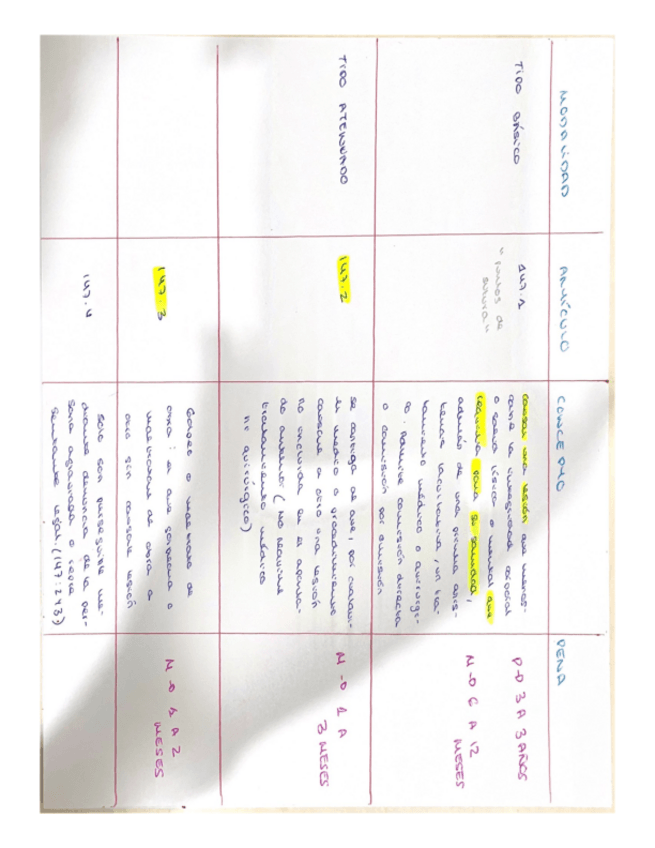 MODALIDAD
ARTÍCULO
CONCEPTO
PENA
TIPO BÁSICO
147.1
"puntos de
sutura"
causar una lesión que menos-
cabe la integridad corporal
o salud física o mental que
requiera para su sanidad,
además de una primera asis-
tencia facultativa, un tra-
tamiento médico o quirúrgi-
co. Permite comisión directa
o comisión por omisión
P-D 3 A 3 AÑOS
M-D 6 A 12
MESES
TIPO ATENUADO
147.2
se castiga al que, por cualqui-
er medio o procedimiento
causare a otro una lesión
no incluida en el aparta-
do anterior (no requiere
tratamiento médico
ni quirúrgico)
M-D 1 A
3 MESES
147.3
Golpeo o maltrato de
otro: el que golpeare o
maltratare de obra a
otro sin causarle lesión
M-D 1 A 2
MESES
147.4
solo son perseguible me-
diante denuncia de la per-
sona agraviada o repre
sentante legal (147:2 y 3)